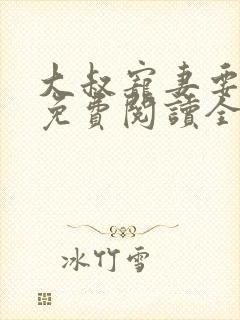 大叔寵妻要
免費閱讀全
冰竹雪